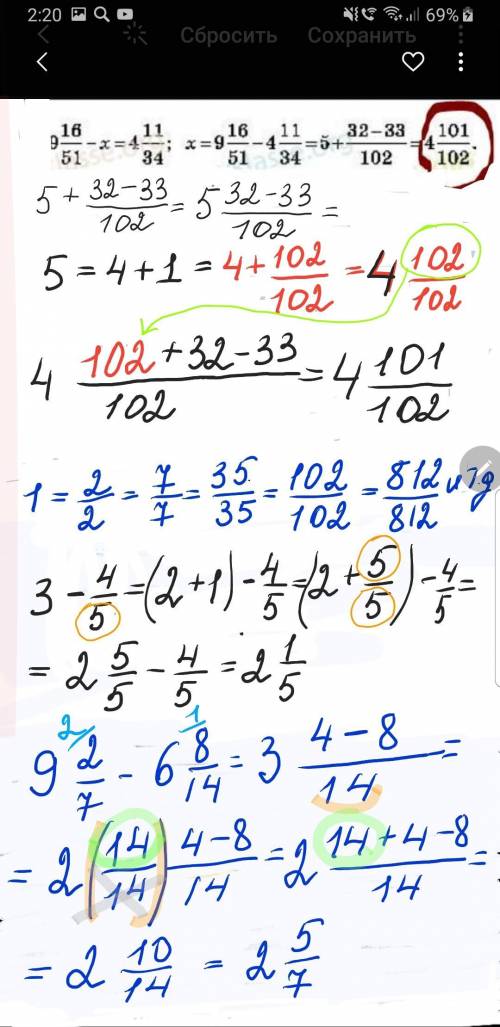 2:20 69%
Сбросить Сохранить
9 16/51 − x = 4 11/34; x = 9 16/51 − 4 11/34 = 5 + (32−33)/102 = 4 101/102.
5 + (32−33)/102 = 5 (32−33)/102 =
5 = 4 + 1 = 4 + 102/102 = 4 102/102
4 (102 + 32 − 33)/102 = 4 101/102
1 = 2/2 = 7/7 = 35/35 = 102/102 = 812/812 и т.д
3 − 4/5 = (2 + 1) − 4/5 = (2 + 5/5) − 4/5 =
= 2 5/5 − 4/5 = 2 1/5
2 1
9 2/7 − 6 8/14 = 3 (4 − 8)/14 =
= 2 (14/14) (4 − 8)/14 = 2 (14 + 4 − 8)/14 =
= 2 10/14 = 2 5/7